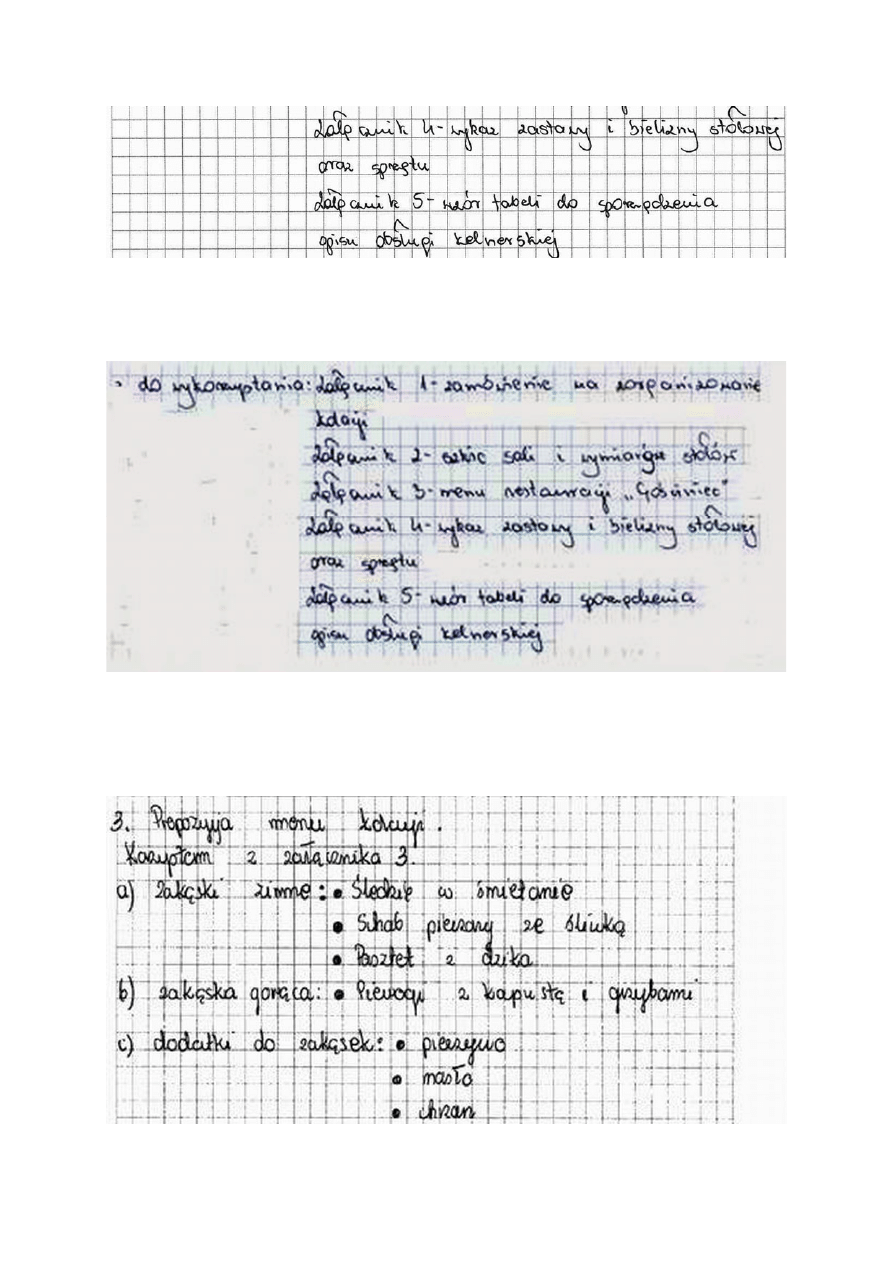 Załącznik 4- wykaz zastawy i bielizny stołowej
oraz sprzętu
Załącznik 5- wzór tabeli do sporządzenia
opisu obsługi kelnerskiej
• do wykorzystania: Załącznik 1- zamówienie na zorganizowanie
kolacji
Załącznik 2- szkic sali i wymiary stołów
Załącznik 3- menu restauracji „Gościniec"
Załącznik 4- wykaz zastawy i bielizny stołowej
oraz sprzętu
Załącznik 5- wzór tabeli do sporządzenia
opisu obsługi kelnerskiej
3. Propozycja menu kolacji.
Korzystam z załącznika 3.
a) zakąski zimne: • Śledzie w śmietanie
• Schab pieczony ze śliwką
• Pasztet z dzika
b) zakąska gorąca: • Pierogi z kapustą i grzybami
c) dodatki do zakąsek: • pieczywo
• masło
• chrzan